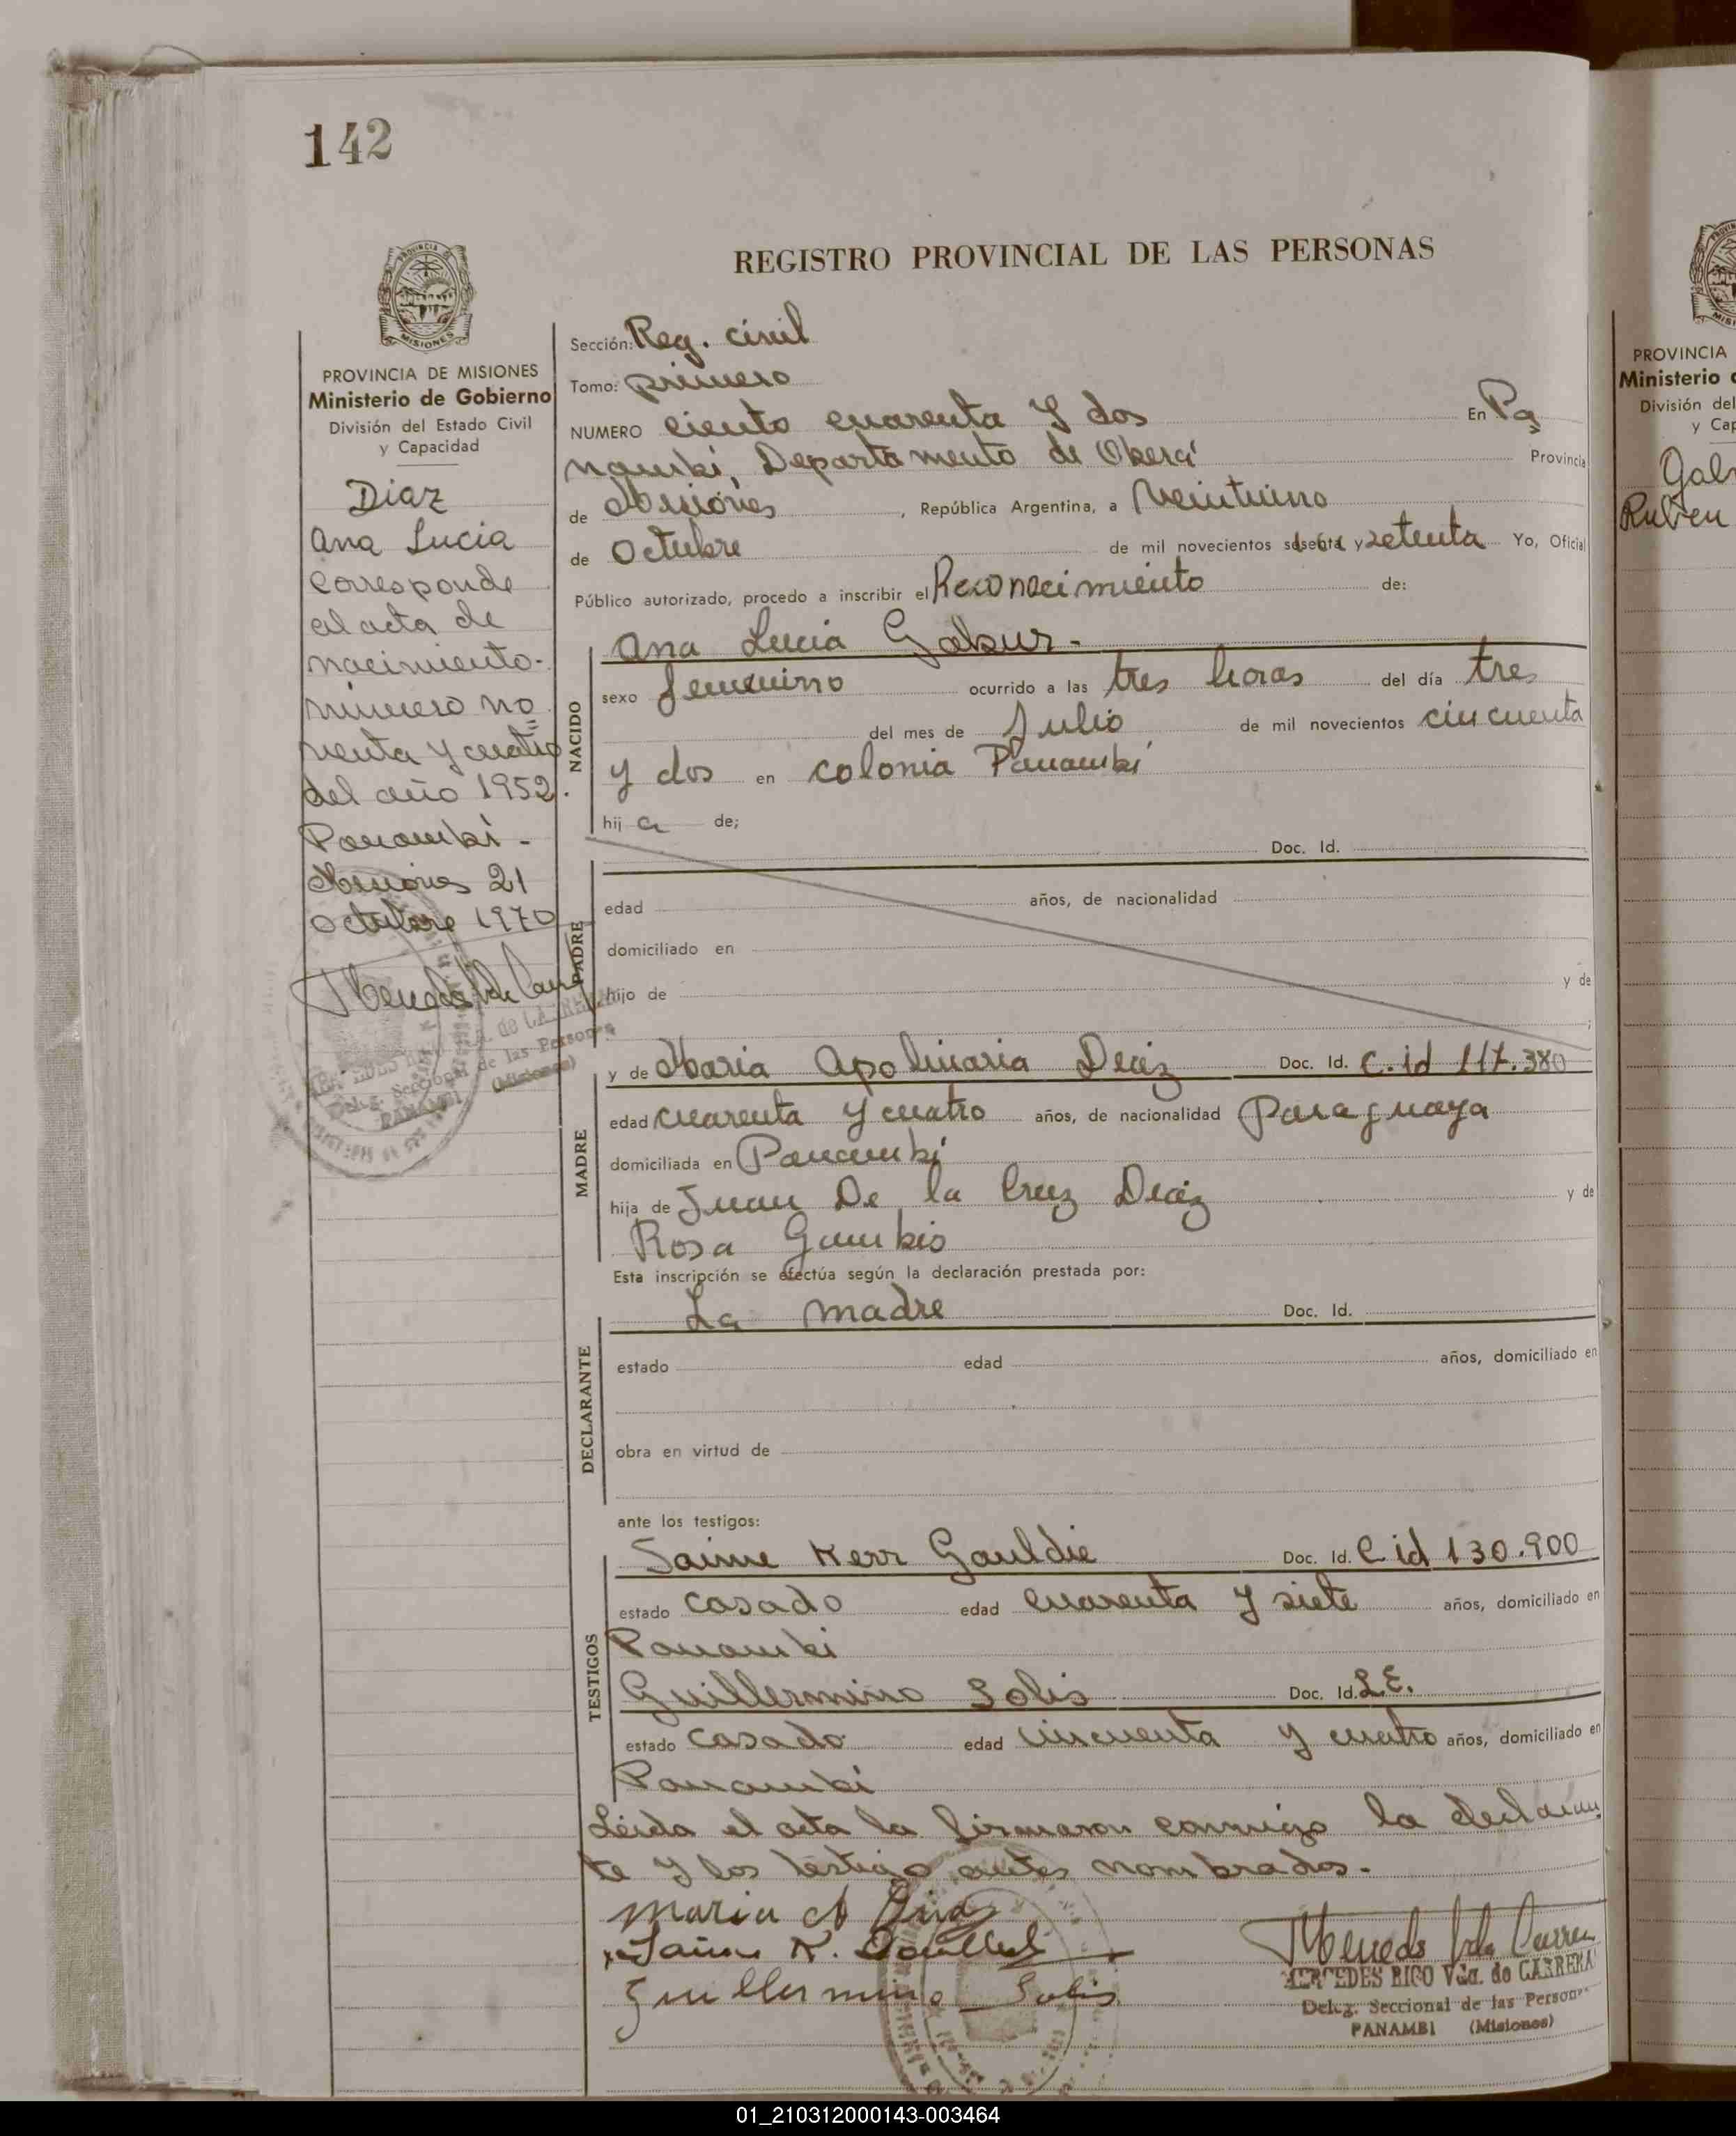 142
REGISTRO PROVINCIAL DE LAS PERSONAS
PROVINCIA DE MISIONES
Ministerio de Gobierno
División del Estado Civil
y Capacidad
Diaz
Ana Lucia
corresponde
al acta de
nacimiento-
número no=
venta y cuatro
del año 1952.
Panambí -
Misiones 21
octubre 1970
Sección: Reg. civil
Tomo: primero
NUMERO ciento cuarenta y dos En Pa=
nambí, Departamento de Oberá Provincia
de Misiones, República Argentina, a Veintiuno
de Octubre de mil novecientos sesenta y setenta Yo, Oficial
Público autorizado, procedo a inscribir el Reconocimiento de:
NACIDO
Ana Lucia Gabur-
sexo femenino ocurrido a las tres horas del día tres
del mes de Julio de mil novecientos cincuenta
y dos en colonia Panambí
hij a de;
PADRE
Doc. Id.
edad años, de nacionalidad
domiciliado en
hijo de y de
;
MADRE
y de Maria Apolinaria Diaz Doc. Id. C. id 117.380
edad cuarenta y cuatro años, de nacionalidad Paraguaya
domiciliada en Panambí
hija de Juan De la Cruz Diaz y de
Rosa
Esta inscripción se efectúa según la declaración prestada por:
DECLARANTE
La madre Doc. Id.
estado edad años, domiciliado en
obra en virtud de
ante los testigos:
TESTIGOS
Jaime Kerr Gauldie Doc. Id. C id 130.900
estado casado edad cuarenta y siete años, domiciliado en
Panambí
Guillermino Solis Doc. Id. L.E.
estado casado edad cincuenta y cuatro años, domiciliado en
Panambí
Leida el acta la firmaron conmigo la declaran
te y los testigo antes nombrados.-
Maria A Diaz
Jaime K.
Guillermino Solis
MERCEDES RICO Vda. de CARRERA
Deleg. Seccional de las Person
PANAMBI (Misiones)
PROVINCIA
Ministerio
División del
y Cap
Rubeu
01_210312000143-003464